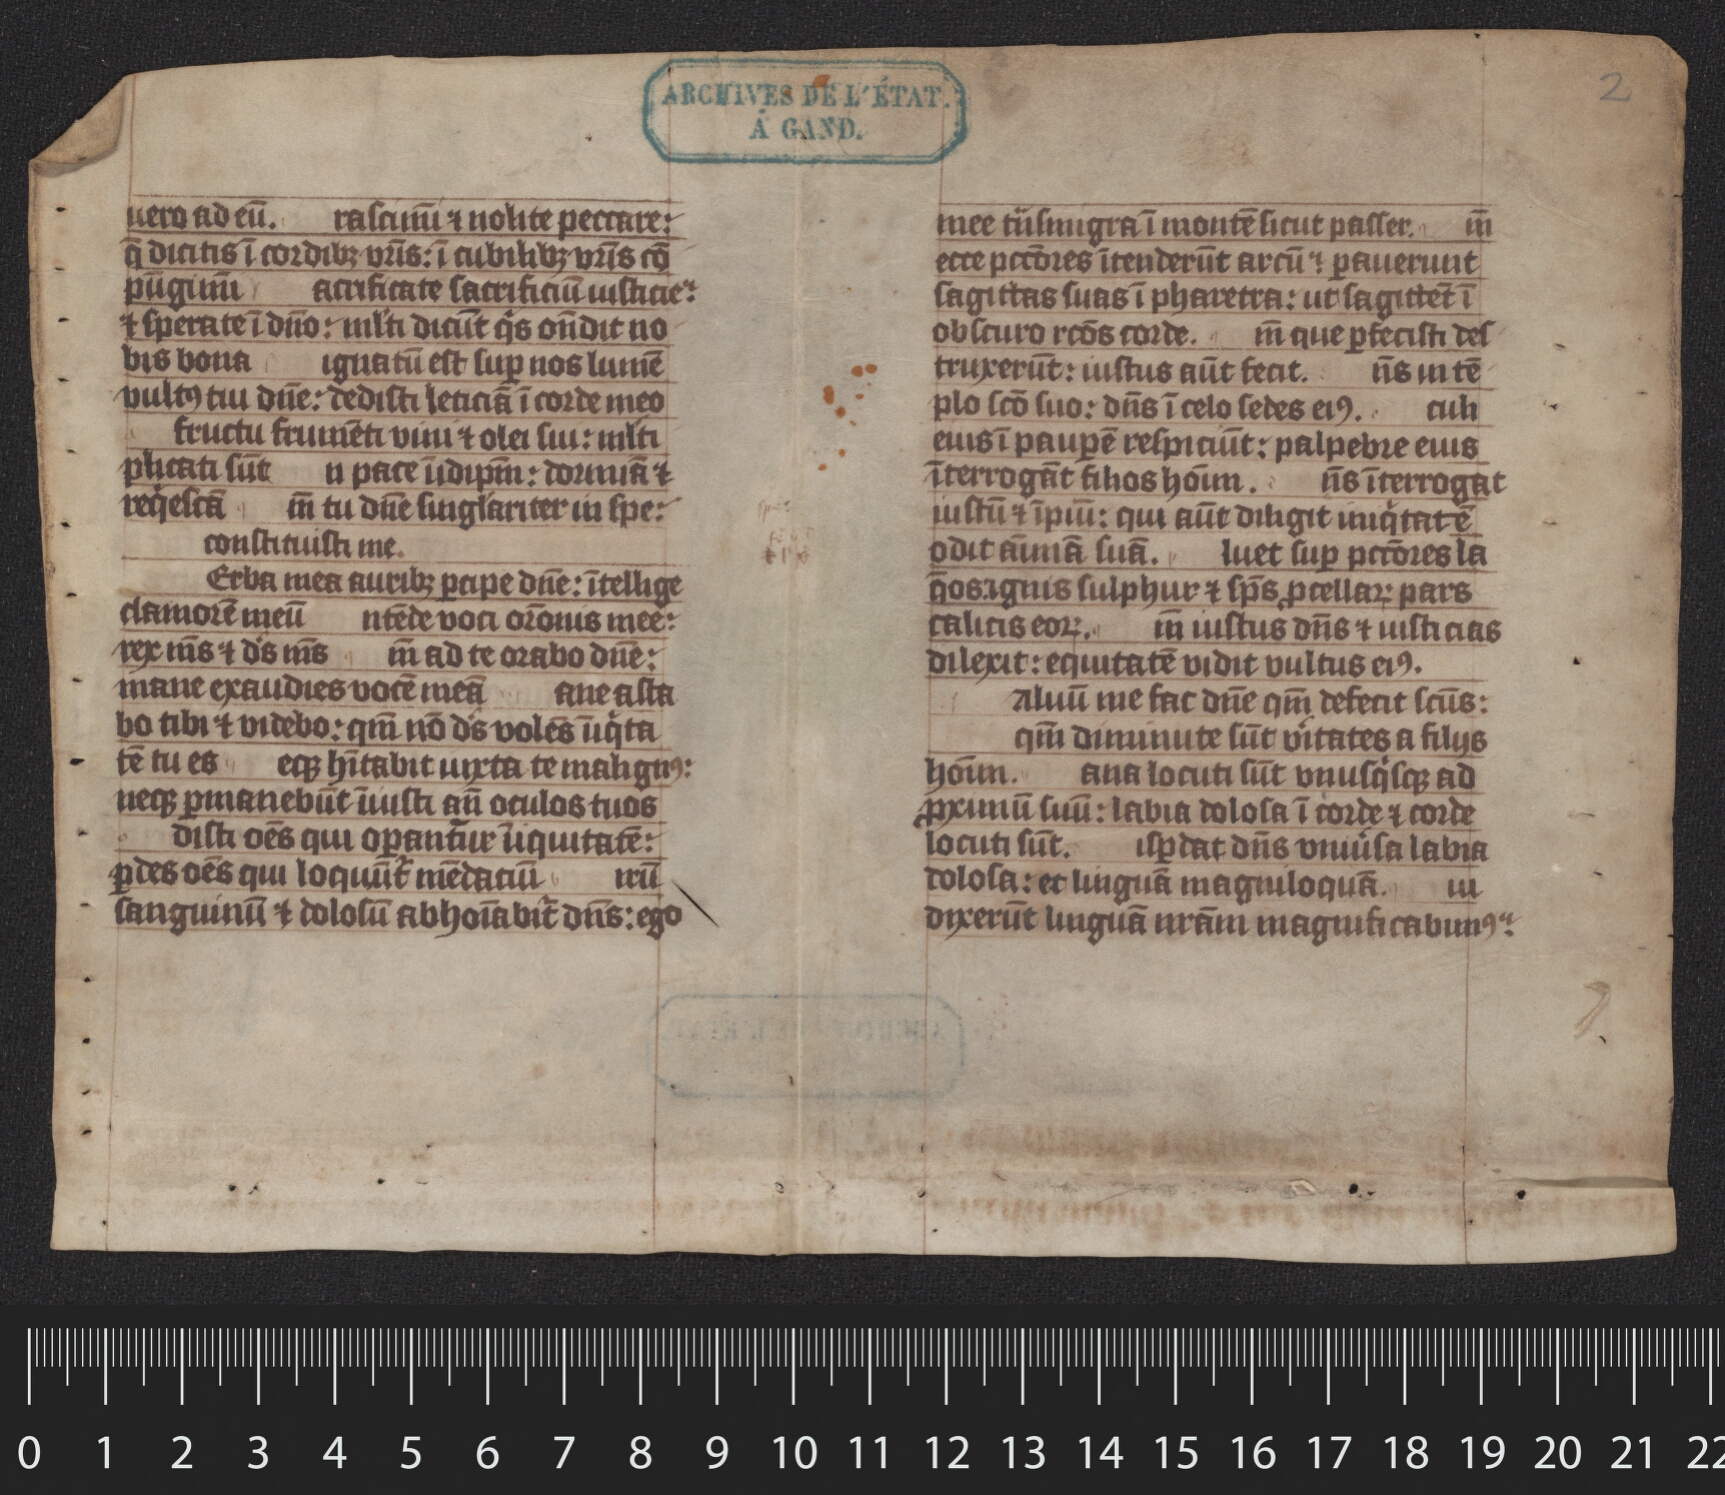 ARCHIVES DE L'ÉTAT.
À GAND.
2
uero ad eū. rascimī ⁊ nolite peccare:
q̄ dicitis ī cordibꝫ vr̄is: ī cubilibꝫ vr̄is cō
pūgimī acrificate sacrificiū iusticie:
⁊ sperate ī dn̄o: ml̄ti dicūt qͥs on̄dit no
bis bona ignatū est suꝑ nos lumē
vultꝰ tui dn̄e: dedisti leticiā ī corde meo
fructu frumēti vini ⁊ olei sui: ml̄ti
plicati sūt n pace ī idip̄m: dormiā ⁊
reqͥescā m̄ tu dn̄e singl̄ariter in spe:
constituisti me.
Erba mea auribꝫ ꝑcipe dn̄e: ītellige
clamorē meū ntēde voci or̄onis mee:
rex m̄s ⁊ d̄s m̄s m̄ ad te orabo dn̄e:
mane exaudies vocē meā ane asta
bo tibi ⁊ videbo: qm̄ nō d̄s volēs īiqͥta
tē tu es eqꝫ hītabit iuxta te malignꝰ:
neqꝫ ꝑmanebūt īiusti an̄ oculos tuos
disti oēs qui oꝑant̄ur īiquitatē:
ꝑdes oēs qui loquūt̄ mēdaciū irū
sanguinū ⁊ dolosū abhoīabit̄ dn̄s: ego
mee trͣsmigra ī montē sicut passer. m̄
ecce pcc̄ores ītenderūt arcū ⁊ ꝑauerunt
sagittas suas ī pharetra: ut sagittēt ī
obscuro rc̄os corde. m̄ que ꝑfecisti des
truxerūt: iustus aūt fecit. n̄s in tē
plo sc̄o suo: dn̄s ī celo sedes eiꝰ. culi
eius ī pauꝑē respiciūt: palpebre eius
īterrogāt filios hoīum. n̄s īterrogat
iustū ⁊ īpiū: qui aūt diligit iniqͥtatē
odit aīmā suā. luet suꝑ pcc̄ores la
q̄os: ignis sulphur ⁊ sp̄s ꝓcellaꝝ: pars
calicis eoꝝ. m̄ iustus dn̄s ⁊ iusticias
dilexit: equitatē vidit vultus eiꝰ.
Aluū me fac dn̄e qm̄ defecit sc̄us:
qm̄ diminute sūt vͥitates a filijs
hoīum. ana locuti sūt vnusqͥsqꝫ ad
ꝓximū suū: labia dolosa ī corde ⁊ corde
locuti sūt. isꝑdat dn̄s vniūsa labia
dolosa: et linguā magniloquā. ui
dixerūt linguā nr̄am magnificabimꝰ: